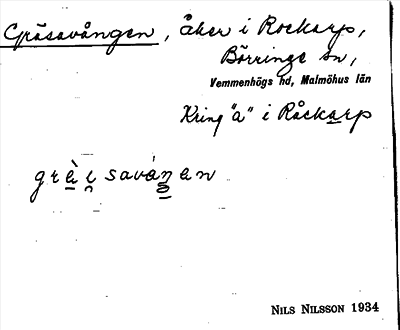 Gräsavången, åker i Rockarp,
Börringe sn,
Vemmenhögs hd, Malmöhus län
Kring "a" i Råckarp
NILS NILSSON 1934